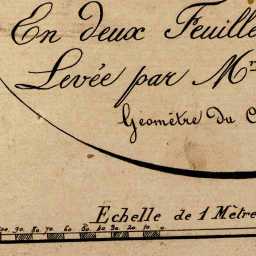 En deux Feuille
Levée par Mr
Géomètre du C
Echelle de 1 Mètre
90 80 70 60 50 40 30 20 10